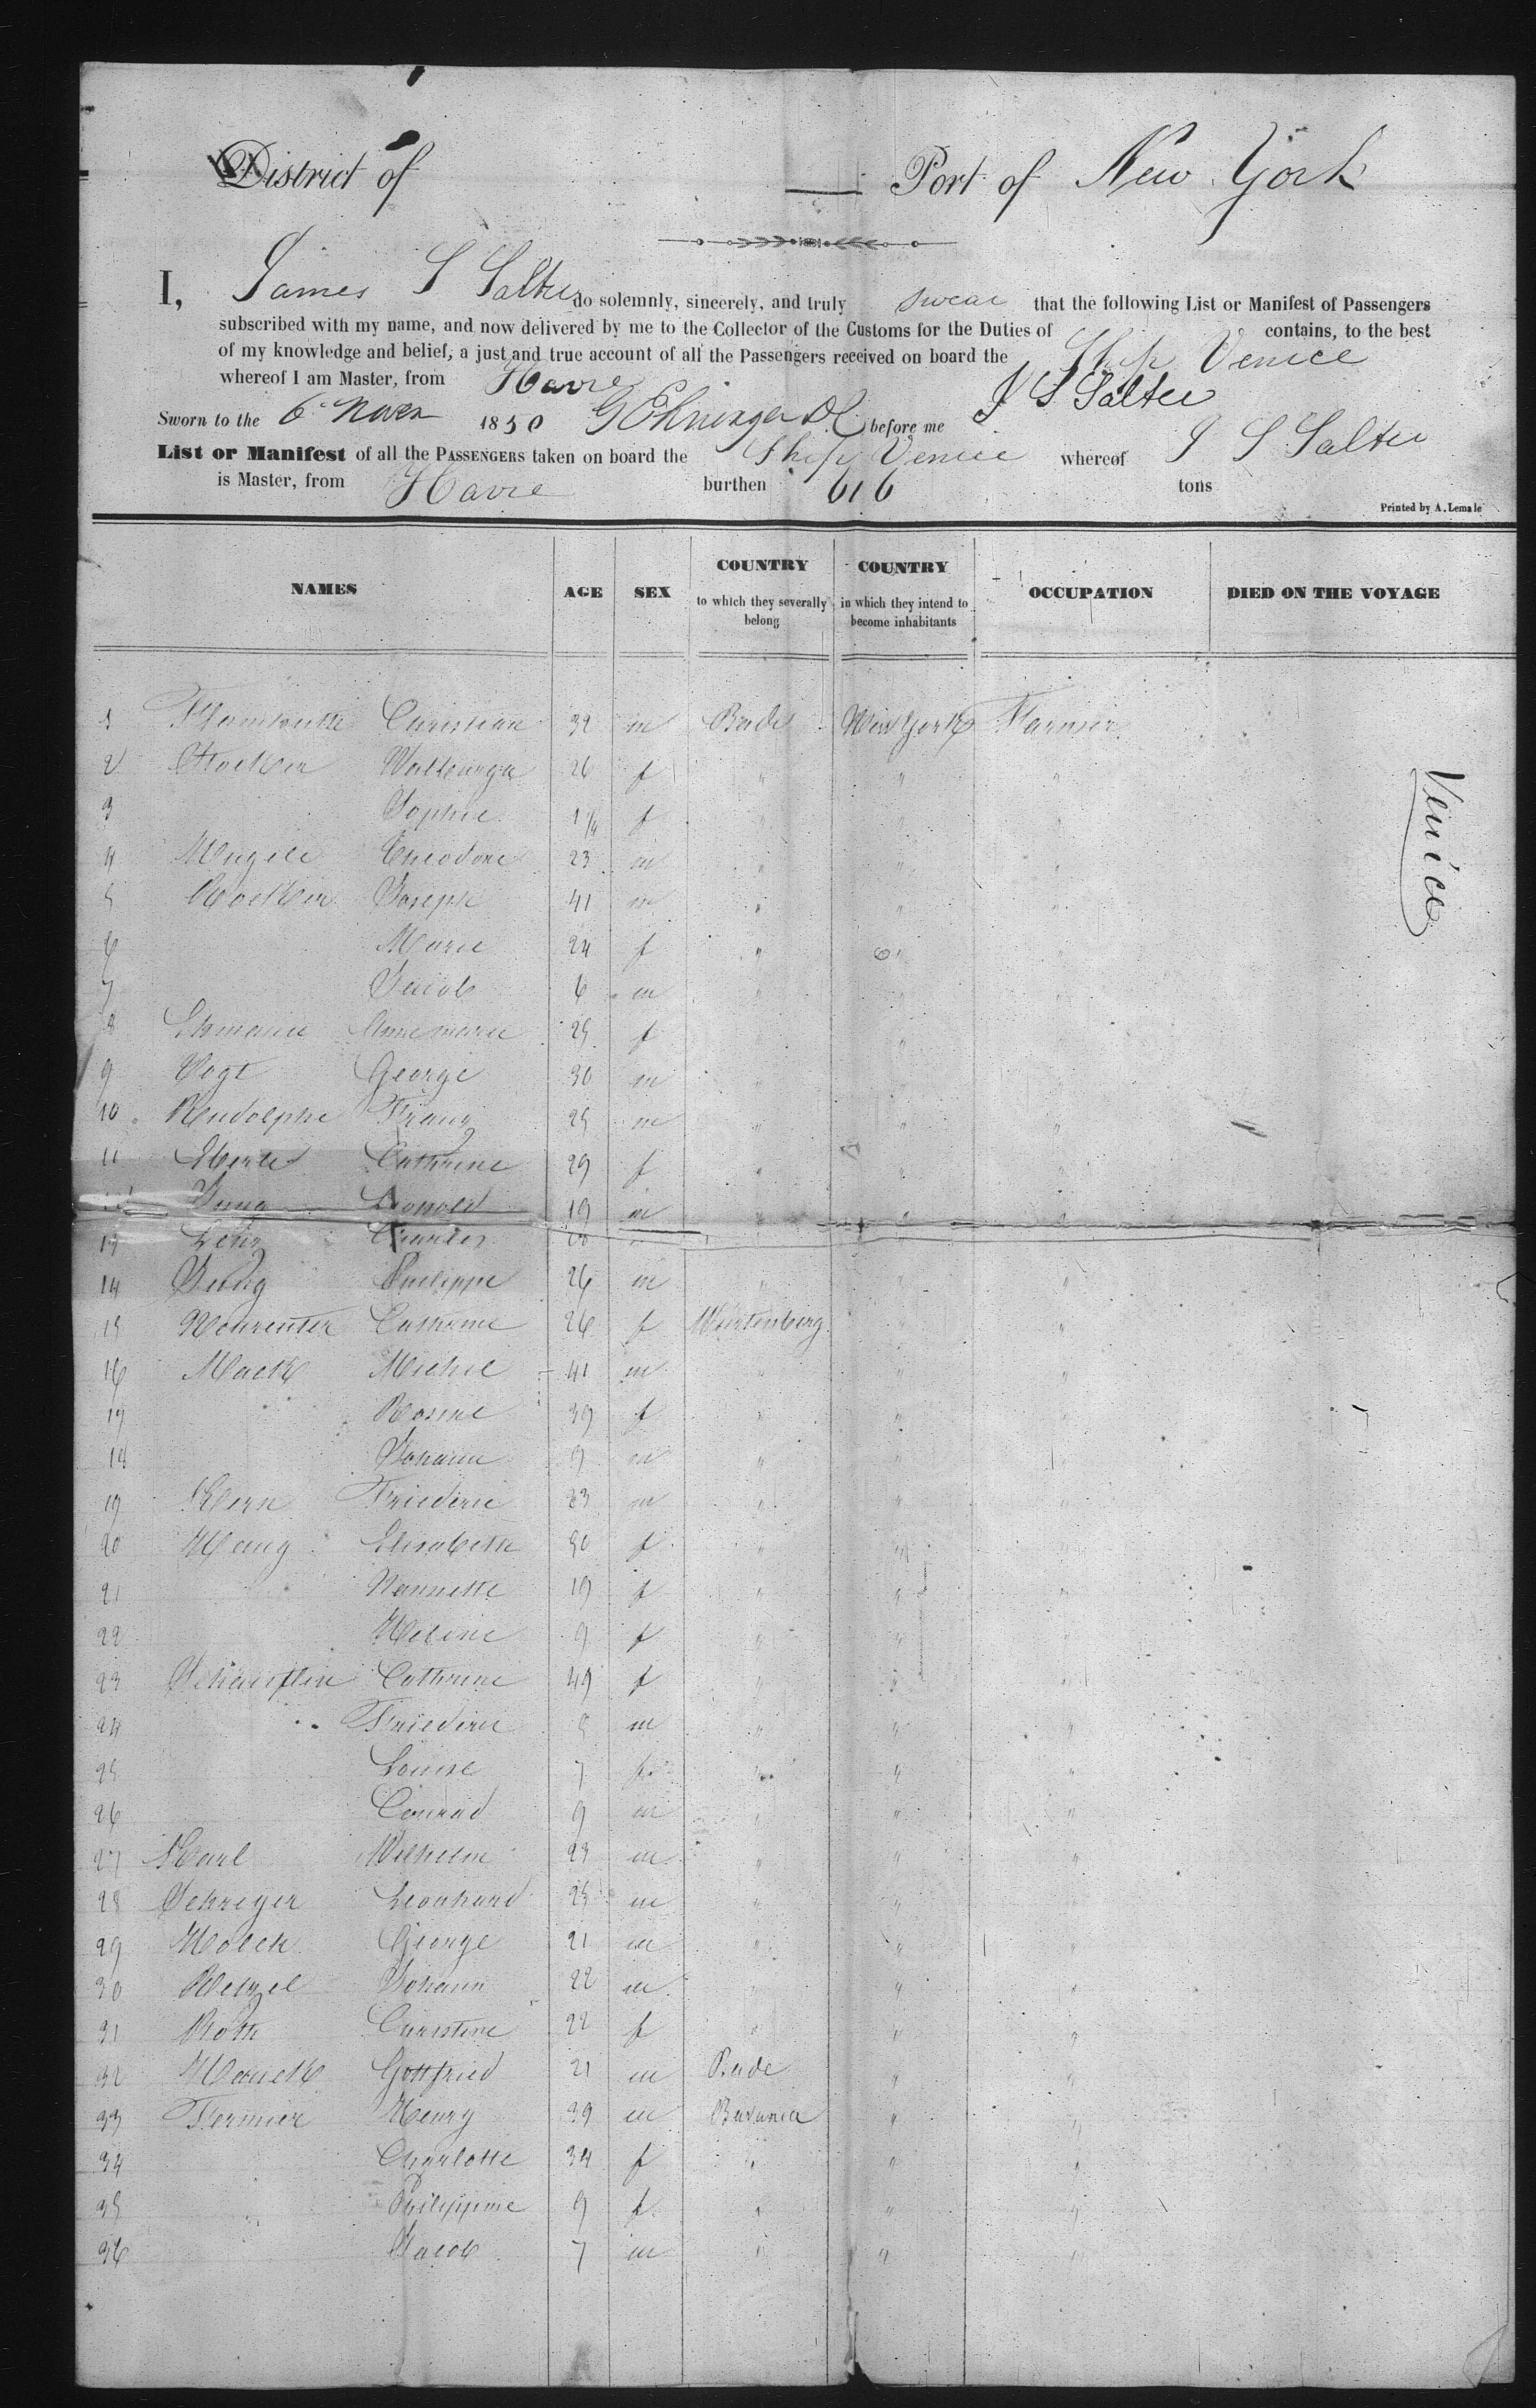 District of Port of New York
I, James S Salter do solemnly, sincerely, and truly swear that the following List or Manifest of Passengers
subscribed with my name, and now delivered by me to the Collector of the Customs for the Duties of contains, to the best
of my knowledge and belief, a just and true account of all the Passengers received on board the Ship Venice
whereof I am Master, from Havre
J S Salter
Sworn to the 6 Novem 1850 G Ehninger DC before me
List or Manifest of all the PASSENGERS taken on board the Ship Venice whereof J S Salter
is Master, from Havre burthen 616 tons
Printed by A. Lemale
NAMES AGE SEX COUNTRY to which they severally belong COUNTRY in which they intend to become inhabitants OCCUPATION DIED ON THE VOYAGE
Venice
1 Christian 32 m Bade New York Farmer
2 Walburga 26 f " " "
3 Sophie 1 1/4 f " " "
4 Theodore 23 m " " "
5 Joseph 41 m " " "
6 Marie 24 f " " "
7 Jacob 6 m " " "
8 Ehmann Annemarie 25 f " " "
9 Vogt George 30 m " " "
10 Rudolphe Franz 25 m " " "
11 Eberle Cathrine 29 f " " "
12 Jung Leopold 19 m " " "
13 Charles
14 Jung Philippe 26 m " " "
15 Cathrine 26 f Würtenberg " "
16 Mack Michel 41 m " " "
17 Rosine 39 f " " "
18 Johann 9 m " " "
19 Kern Friederic 23 m " " "
20 Haug Elisabeth 50 f " " "
21 Nannette 19 f " " "
22 Helene 9 f " " "
23 Schaufflin Cathrine 49 f " " "
24 Friederic m " " "
25 Louise 7 f " " "
26 Conrad 9 m " " "
27 Karl Wilhelm 23 m " " "
28 Schreyer Leonhard 25 m " " "
29 Holch George 21 m " " "
30 Wetzel Johann 22 m " " "
31 Roth Christine 22 f " " "
32 Hauck Gottfried 21 m Bade " "
33 Fermier Henry 39 m Bavaria " "
34 Charlotte 34 f " " "
35 Philippine 9 f " " "
36 Jacob 7 m " " "